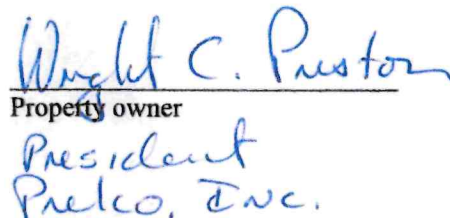 Wright C. Preston
Property owner
President
Prelco, Inc.